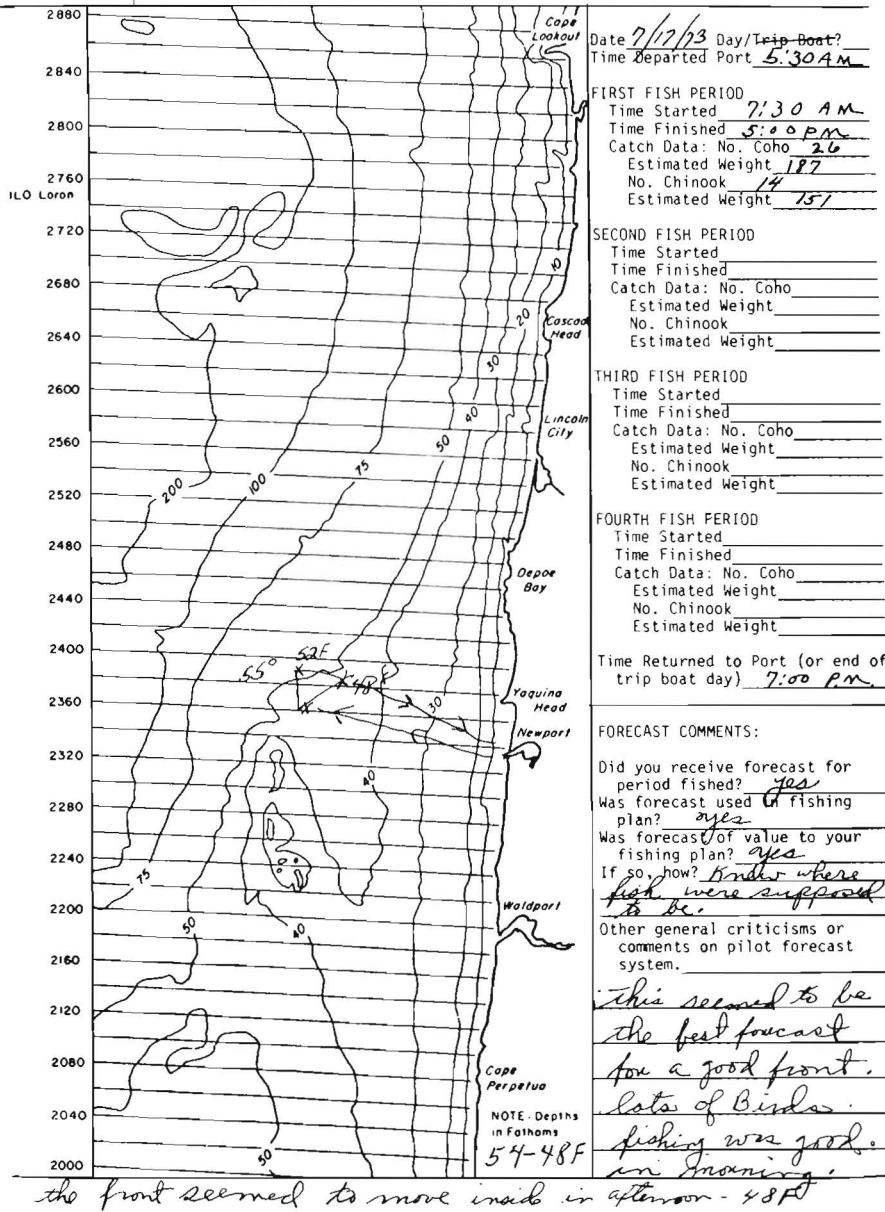 2880
2840
2800
2760
ILO Loran
2720
2680
2640
2600
2560
2520
2480
2440
2400
2360
2320
2280
2240
2200
2160
2120
2080
2040
2000
Cape
Lookout
10
Cascad
Head
20
30
Lincoln
City
40
50
75
100
200
Depoe
Bay
55° 52F
48F
30
Yaquina
Head
Newport
40
75
50
40
Waldport
Cape
Perpetua
50
NOTE-Depths
in Fathoms
54-48F
Date 7/17/73 Day/Trip Boat?
Time Departed Port 5:30 AM
FIRST FISH PERIOD
Time Started 7:30 AM
Time Finished 5:00 PM
Catch Data: No. Coho 26
Estimated Weight 187
No. Chinook 14
Estimated Weight 151
SECOND FISH PERIOD
Time Started
Time Finished
Catch Data: No. Coho
Estimated Weight
No. Chinook
Estimated Weight
THIRD FISH PERIOD
Time Started
Time Finished
Catch Data: No. Coho
Estimated Weight
No. Chinook
Estimated Weight
FOURTH FISH PERIOD
Time Started
Time Finished
Catch Data: No. Coho
Estimated Weight
No. Chinook
Estimated Weight
Time Returned to Port (or end of
trip boat day) 7:00 P.M.
FORECAST COMMENTS:
Did you receive forecast for
period fished? yes
Was forecast used in fishing
plan? yes
Was forecast of value to your
fishing plan? yes
If so, how? Knew where
fish were supposed
to be.
Other general criticisms or
comments on pilot forecast
system.
this seemed to be
the best forecast
for a good front.
lots of Birds.
fishing was good.
in morning.
the front seemed to move inside in afternoon - 48F